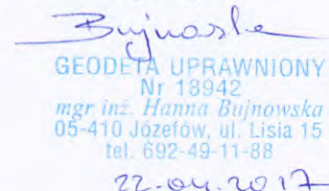 Bujnowska
GEODETA UPRAWNIONY
Nr 18942
mgr inż. Hanna Bujnowska
05-410 Józefów, ul. Lisia 15
tel. 692-49-11-88
22.04.2017